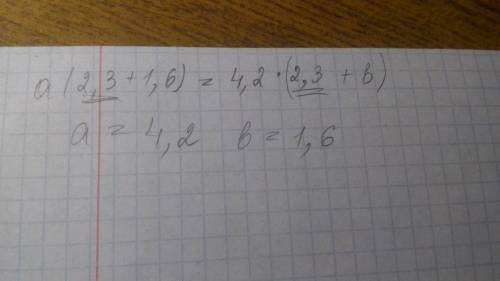 a (2,3 + 1,6) = 4,2 · (2,3 + b)
a = 4,2 b = 1,6